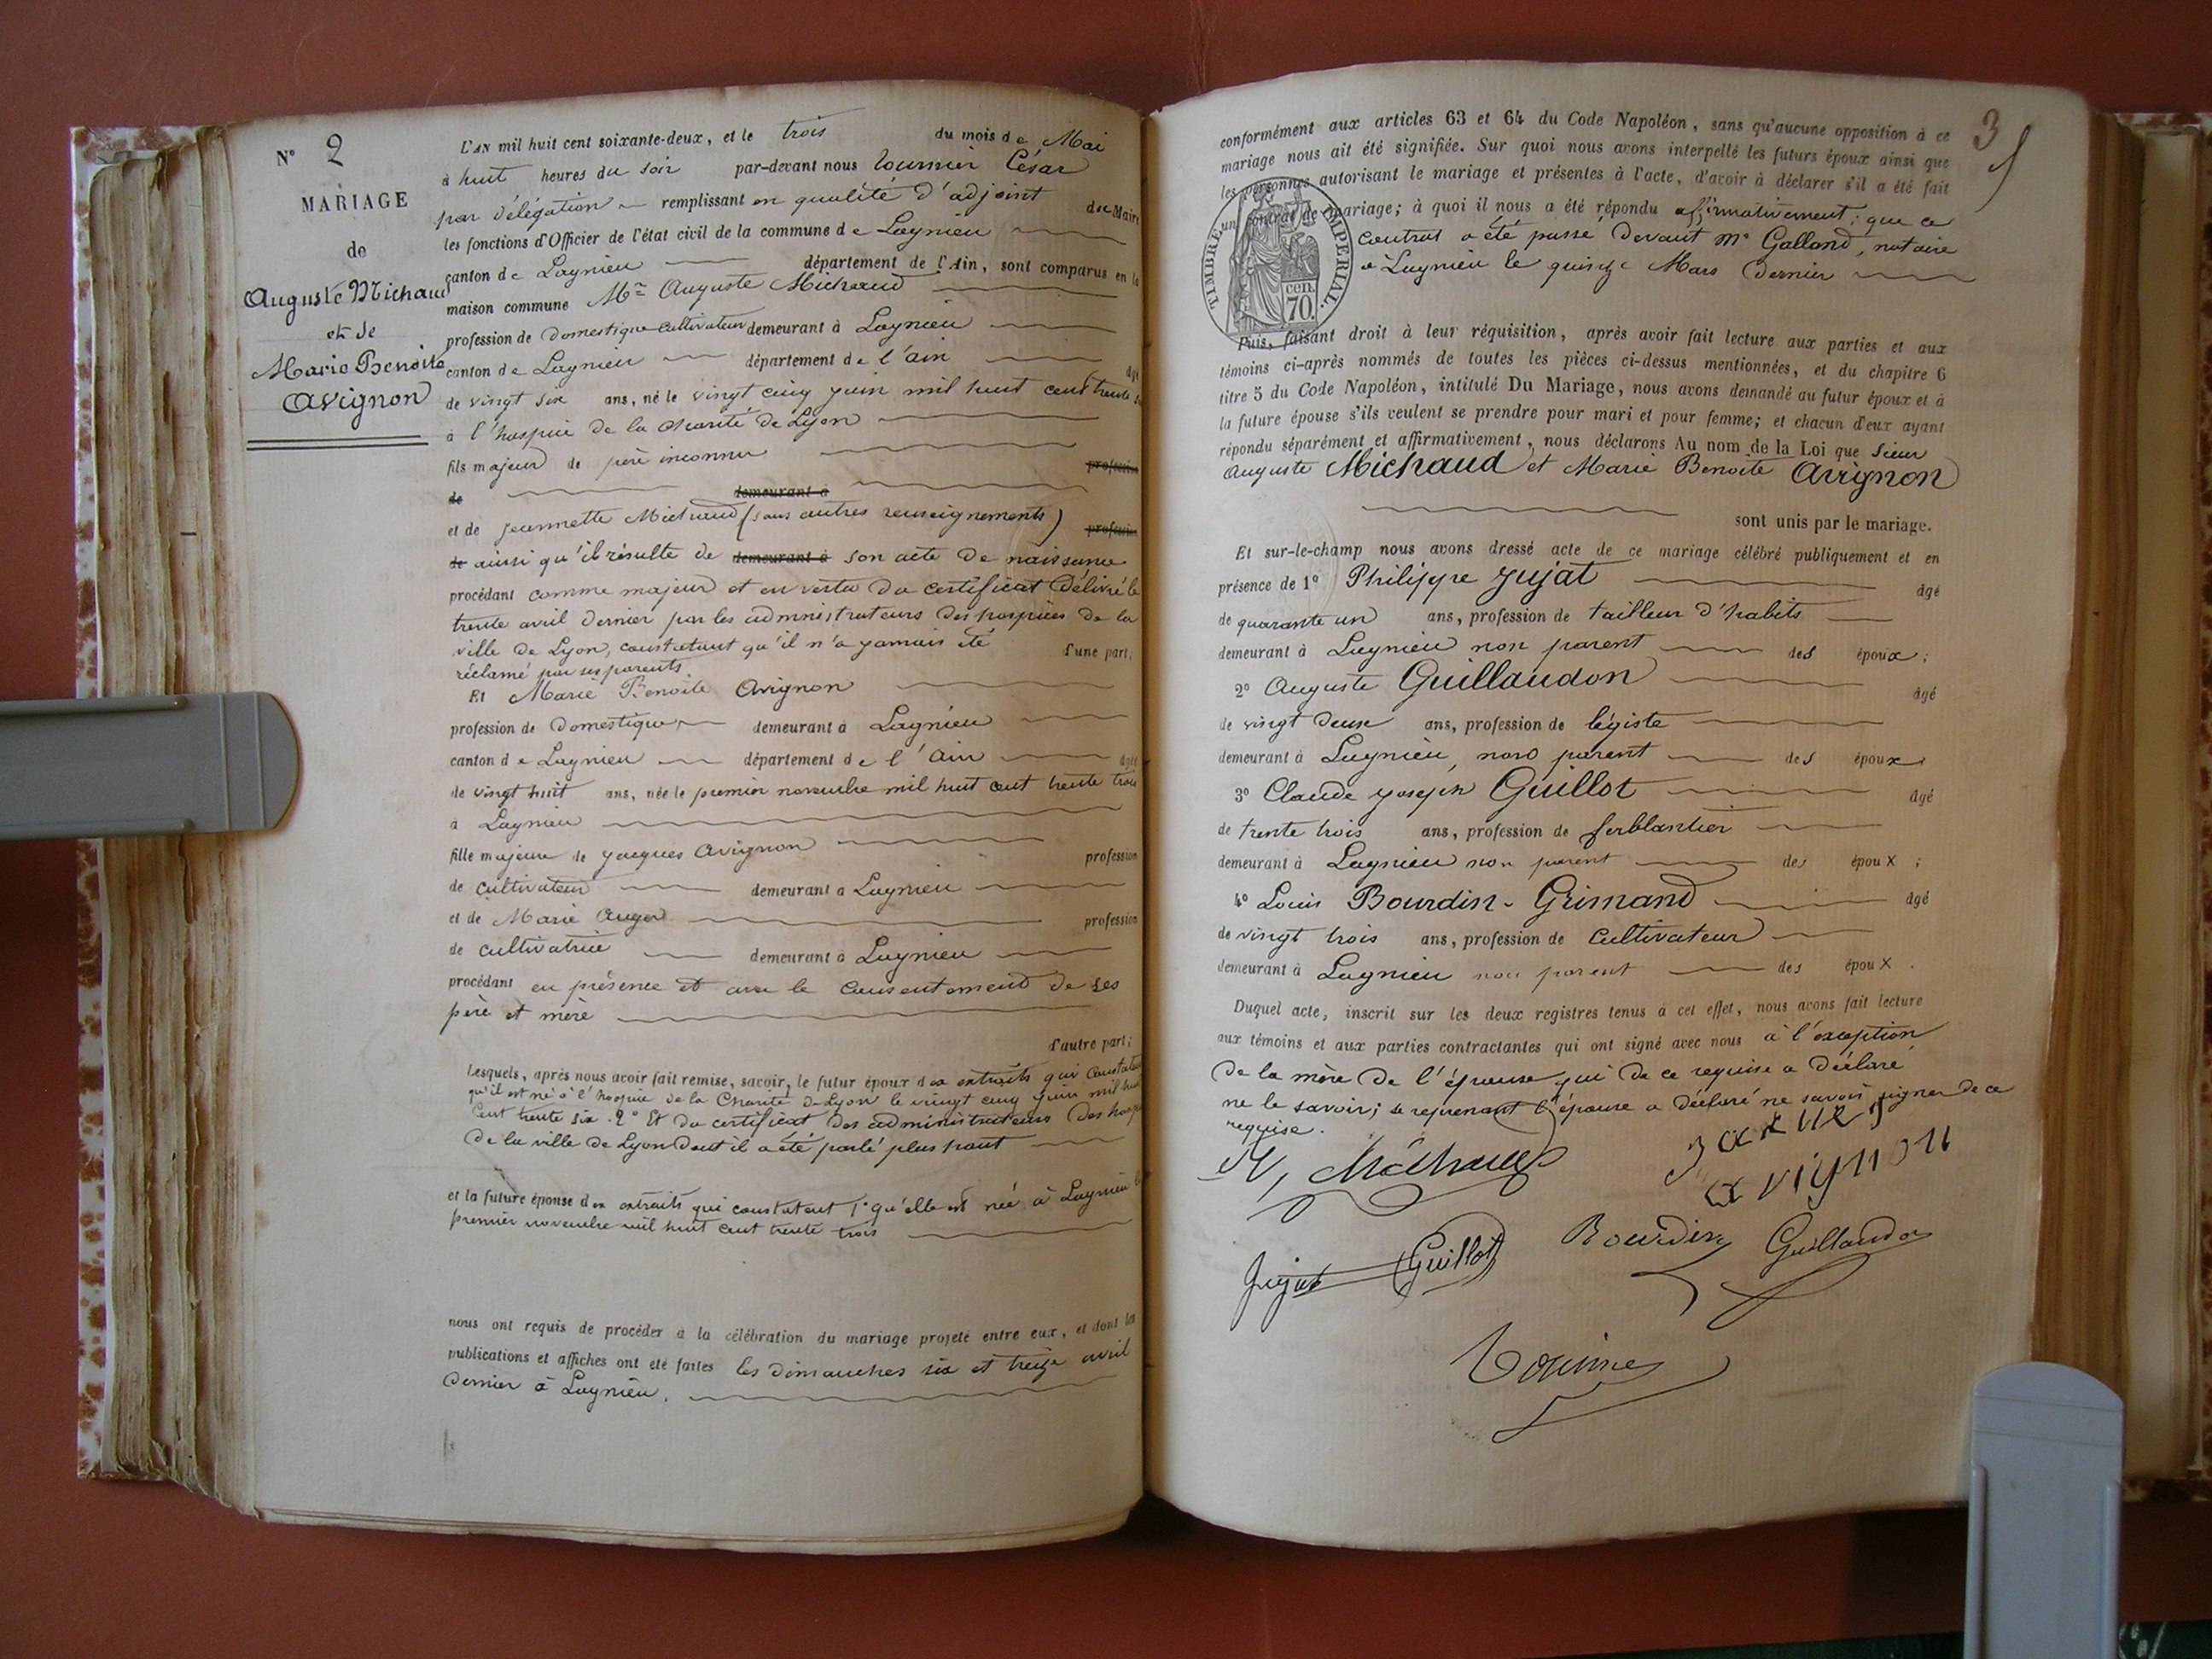 N° 2
MARIAGE
de
Auguste Michaud
et de
Marie Benoite
Avignon
L'AN mil huit cent soixante-deux, et le trois du mois de Mai
à huit heures du soir par-devant nous Tournier César
par délégation remplissant en qualité d'adjoint du Maire
les fonctions d'Officier de l'état civil de la commune de Lagnieu
canton de Lagnieu département de l'Ain, sont comparus en la
maison commune Mr Auguste Michaud
profession de Domestique Cultivateur demeurant à Lagnieu
canton de Lagnieu département de l'ain âgé
de vingt six ans, né le vingt cinq juin mil huit cent trente six
à l'hospice de la Charité de Lyon
fils majeur de père inconnu profession
de demeurant à
et de Jeannette Michaud (sans autres renseignements) profession
de ainsi qu'il résulte de demeurant à son acte de naissance
procédant comme majeur et en vertu du certificat délivré le
trente avril dernier par les administrateurs des hospices de la
ville de Lyon, constatant qu'il n'a jamais été d'une part;
réclamé par ses parents
Et Marie Benoite Avignon
profession de Domestique demeurant à Lagnieu
canton de Lagnieu département de l'Ain âgée
de vingt huit ans, née le premier novembre mil huit cent trente trois
à Lagnieu
fille majeure de Jacques Avignon profession
de cultivateur demeurant à Lagnieu
et de Marie Auger profession
de cultivatrice demeurant à Lagnieu
procédant en présence et avec le consentement de ses
père et mère
d'autre part;
Lesquels, après nous avoir fait remise, savoir, le futur époux des extraits qui constatent
qu'il est né à l'hospice de la Charité de Lyon le vingt cinq juin mil huit
cent trente six. 2° Et du certificat des administrateurs des hospices
de la ville de Lyon dont il a été parlé plus haut
et la future épouse des extraits qui constatent 1° qu'elle est née à Lagnieu le
premier novembre mil huit cent trente trois
nous ont requis de procéder à la célébration du mariage projeté entre eux, et dont les
publications et affiches ont été faites les dimanches six et treize avril
dernier à Lagnieu.
3
conformément aux articles 63 et 64 du Code Napoléon, sans qu'aucune opposition à ce
mariage nous ait été signifiée. Sur quoi nous avons interpellé les futurs époux ainsi que
les personnes autorisant le mariage et présentes à l'acte, d'avoir à déclarer s'il a été fait
un contrat de mariage; à quoi il nous a été répondu affirmativement; que ce
contrat a été passé devant Me Galland, notaire
à Lagnieu le quinze Mars dernier
TIMBRE IMPERIAL.
cen.
70.
Puis, faisant droit à leur réquisition, après avoir fait lecture aux parties et aux
témoins ci-après nommés de toutes les pièces ci-dessus mentionnées, et du chapitre 6
titre 5 du Code Napoléon, intitulé Du Mariage, nous avons demandé au futur époux et à
la future épouse s'ils veulent se prendre pour mari et pour femme; et chacun d'eux ayant
répondu séparément et affirmativement, nous déclarons Au nom de la Loi que sieur
Auguste Michaud et Marie Benoite Avignon
sont unis par le mariage.
Et sur-le-champ nous avons dressé acte de ce mariage célébré publiquement et en
présence de 1° Philippe Jujat âgé
de quarante un ans, profession de tailleur d'habits
demeurant à Lagnieu non parent des époux;
2° Auguste Guillaudon âgé
de vingt deux ans, profession de légiste
demeurant à Lagnieu, non parent des époux;
3° Claude Joseph Guillot âgé
de trente trois ans, profession de ferblantier
demeurant à Lagnieu non parent des époux;
4° Louis Bourdin-Grimand âgé
de vingt trois ans, profession de Cultivateur
demeurant à Lagnieu non parent des époux.
Duquel acte, inscrit sur les deux registres tenus à cet effet, nous avons fait lecture
aux témoins et aux parties contractantes qui ont signé avec nous à l'exception
de la mère de l'épouse qui de ce requise a déclaré
ne le savoir; se reprenant l'épouse a déclaré ne savoir signer de ce
requise.
Michaud
avignon
Jujat Guillot Bourdin Guillaudon
Tournier